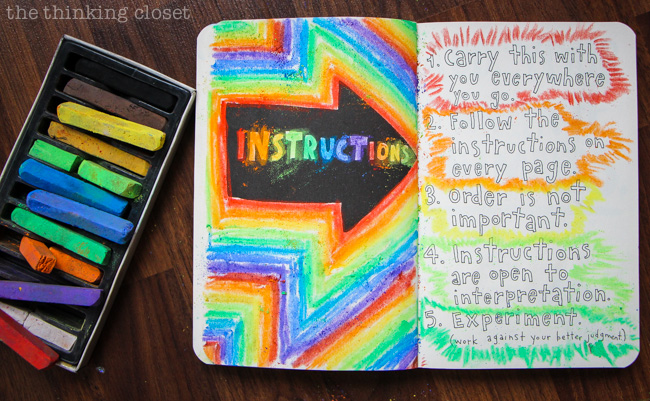 the thinking closet
INSTRUCTIONS
1. Carry this with
you everywhere
you go.
2. Follow the
instructions on
every page.
3. Order is not
important.
4. Instructions
are open to
interpretation.
5. Experiment.
(work against your better judgment.)